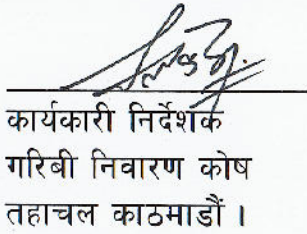 कार्यकारी निर्देशक
गरिबी निवारण कोष
तहाचल काठमाडौं ।